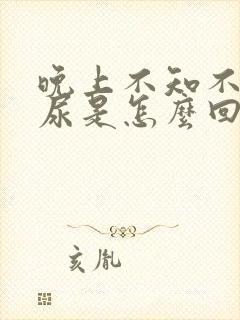 晚上不知不
尿是怎麼回
亥胤